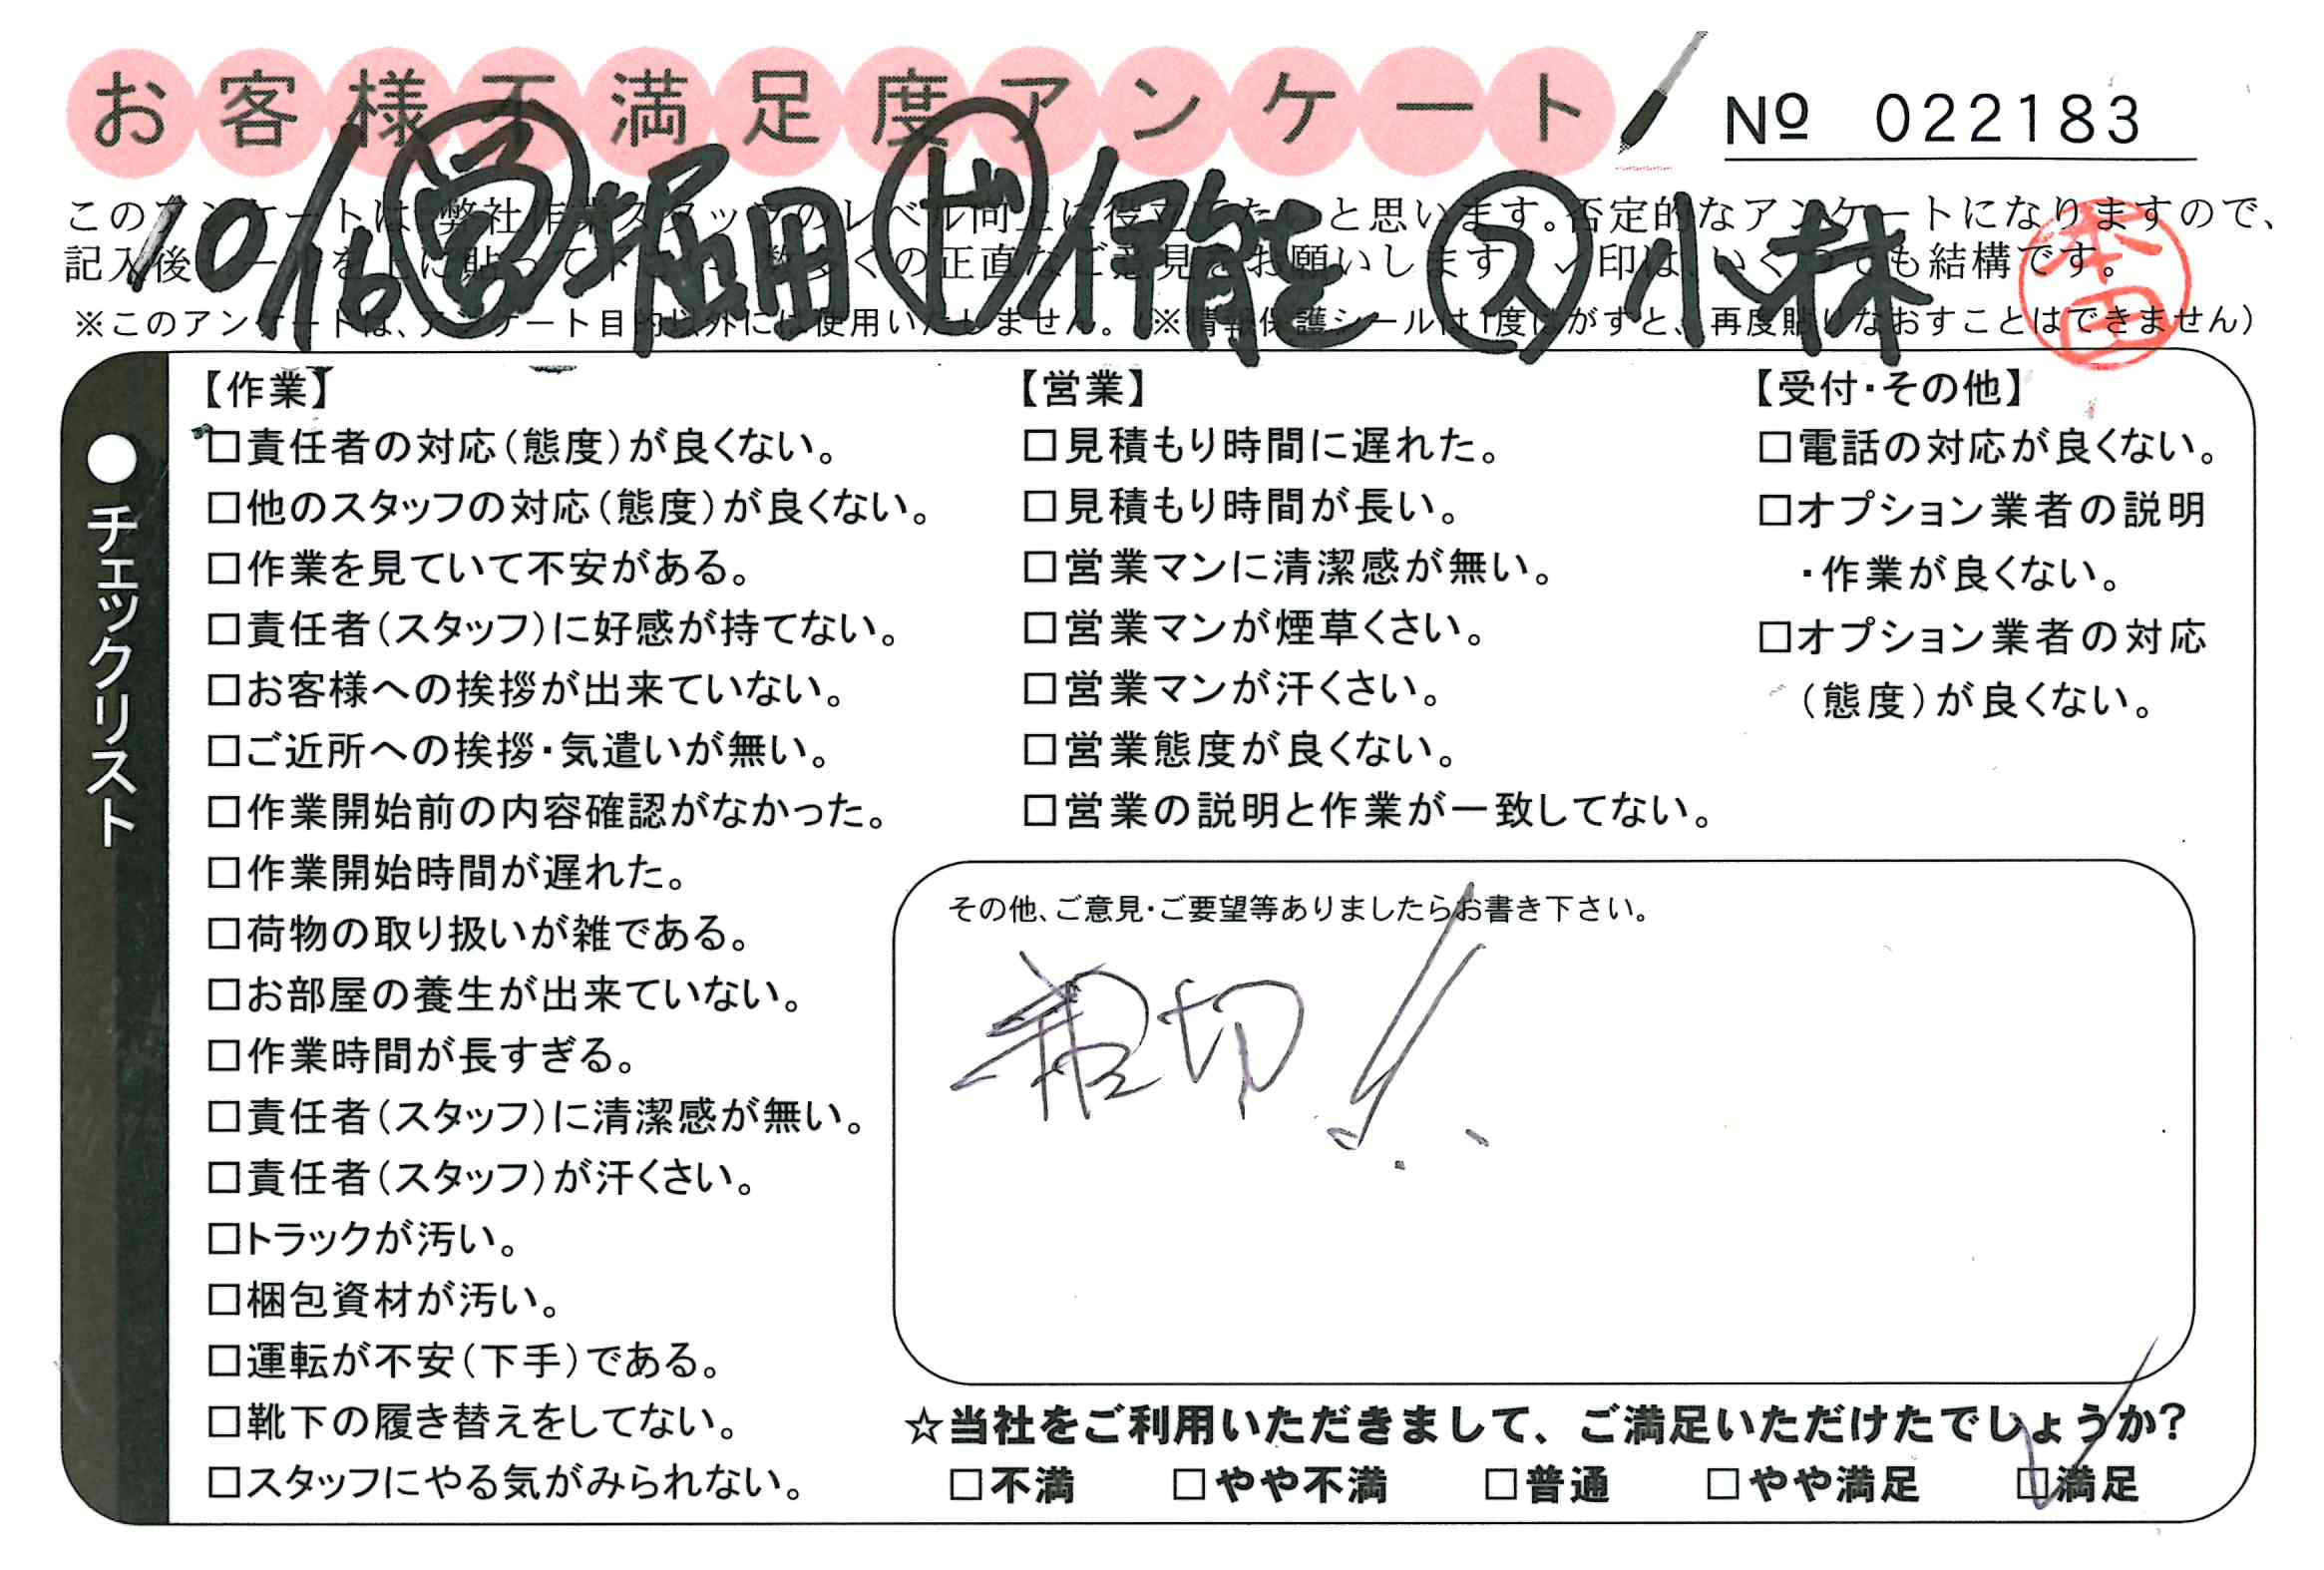 お客様不満足度アンケート
Nº 022183
10/16 ㊂堀田 ド 伊能 ス 小林
本田
このアンケートは、弊社作業スタッフのレベル向上に役立てたいと思います。否定的なアンケートになりますので、
記入後シールを上に貼って下さい。数多くの正直なご意見をお願いします。レ印は、いくつでも結構です。
※このアンケートは、アンケート目的以外には使用いたしません。(※情報保護シールは1度はがすと、再度貼りなおすことはできません)
●チェックリスト
【作業】
□責任者の対応(態度)が良くない。
□他のスタッフの対応(態度)が良くない。
□作業を見ていて不安がある。
□責任者(スタッフ)に好感が持てない。
□お客様への挨拶が出来ていない。
□ご近所への挨拶・気遣いが無い。
□作業開始前の内容確認がなかった。
□作業開始時間が遅れた。
□荷物の取り扱いが雑である。
□お部屋の養生が出来ていない。
□作業時間が長すぎる。
□責任者(スタッフ)に清潔感が無い。
□責任者(スタッフ)が汗くさい。
□トラックが汚い。
□梱包資材が汚い。
□運転が不安(下手)である。
□靴下の履き替えをしてない。
□スタッフにやる気がみられない。
【営業】
□見積もり時間に遅れた。
□見積もり時間が長い。
□営業マンに清潔感が無い。
□営業マンが煙草くさい。
□営業マンが汗くさい。
□営業態度が良くない。
□営業の説明と作業が一致してない。
【受付・その他】
□電話の対応が良くない。
□オプション業者の説明
・作業が良くない。
□オプション業者の対応
(態度)が良くない。
その他、ご意見・ご要望等ありましたらお書き下さい。
親切!!
☆当社をご利用いただきまして、ご満足いただけたでしょうか?
□不満 □やや不満 □普通 □やや満足 ☑満足